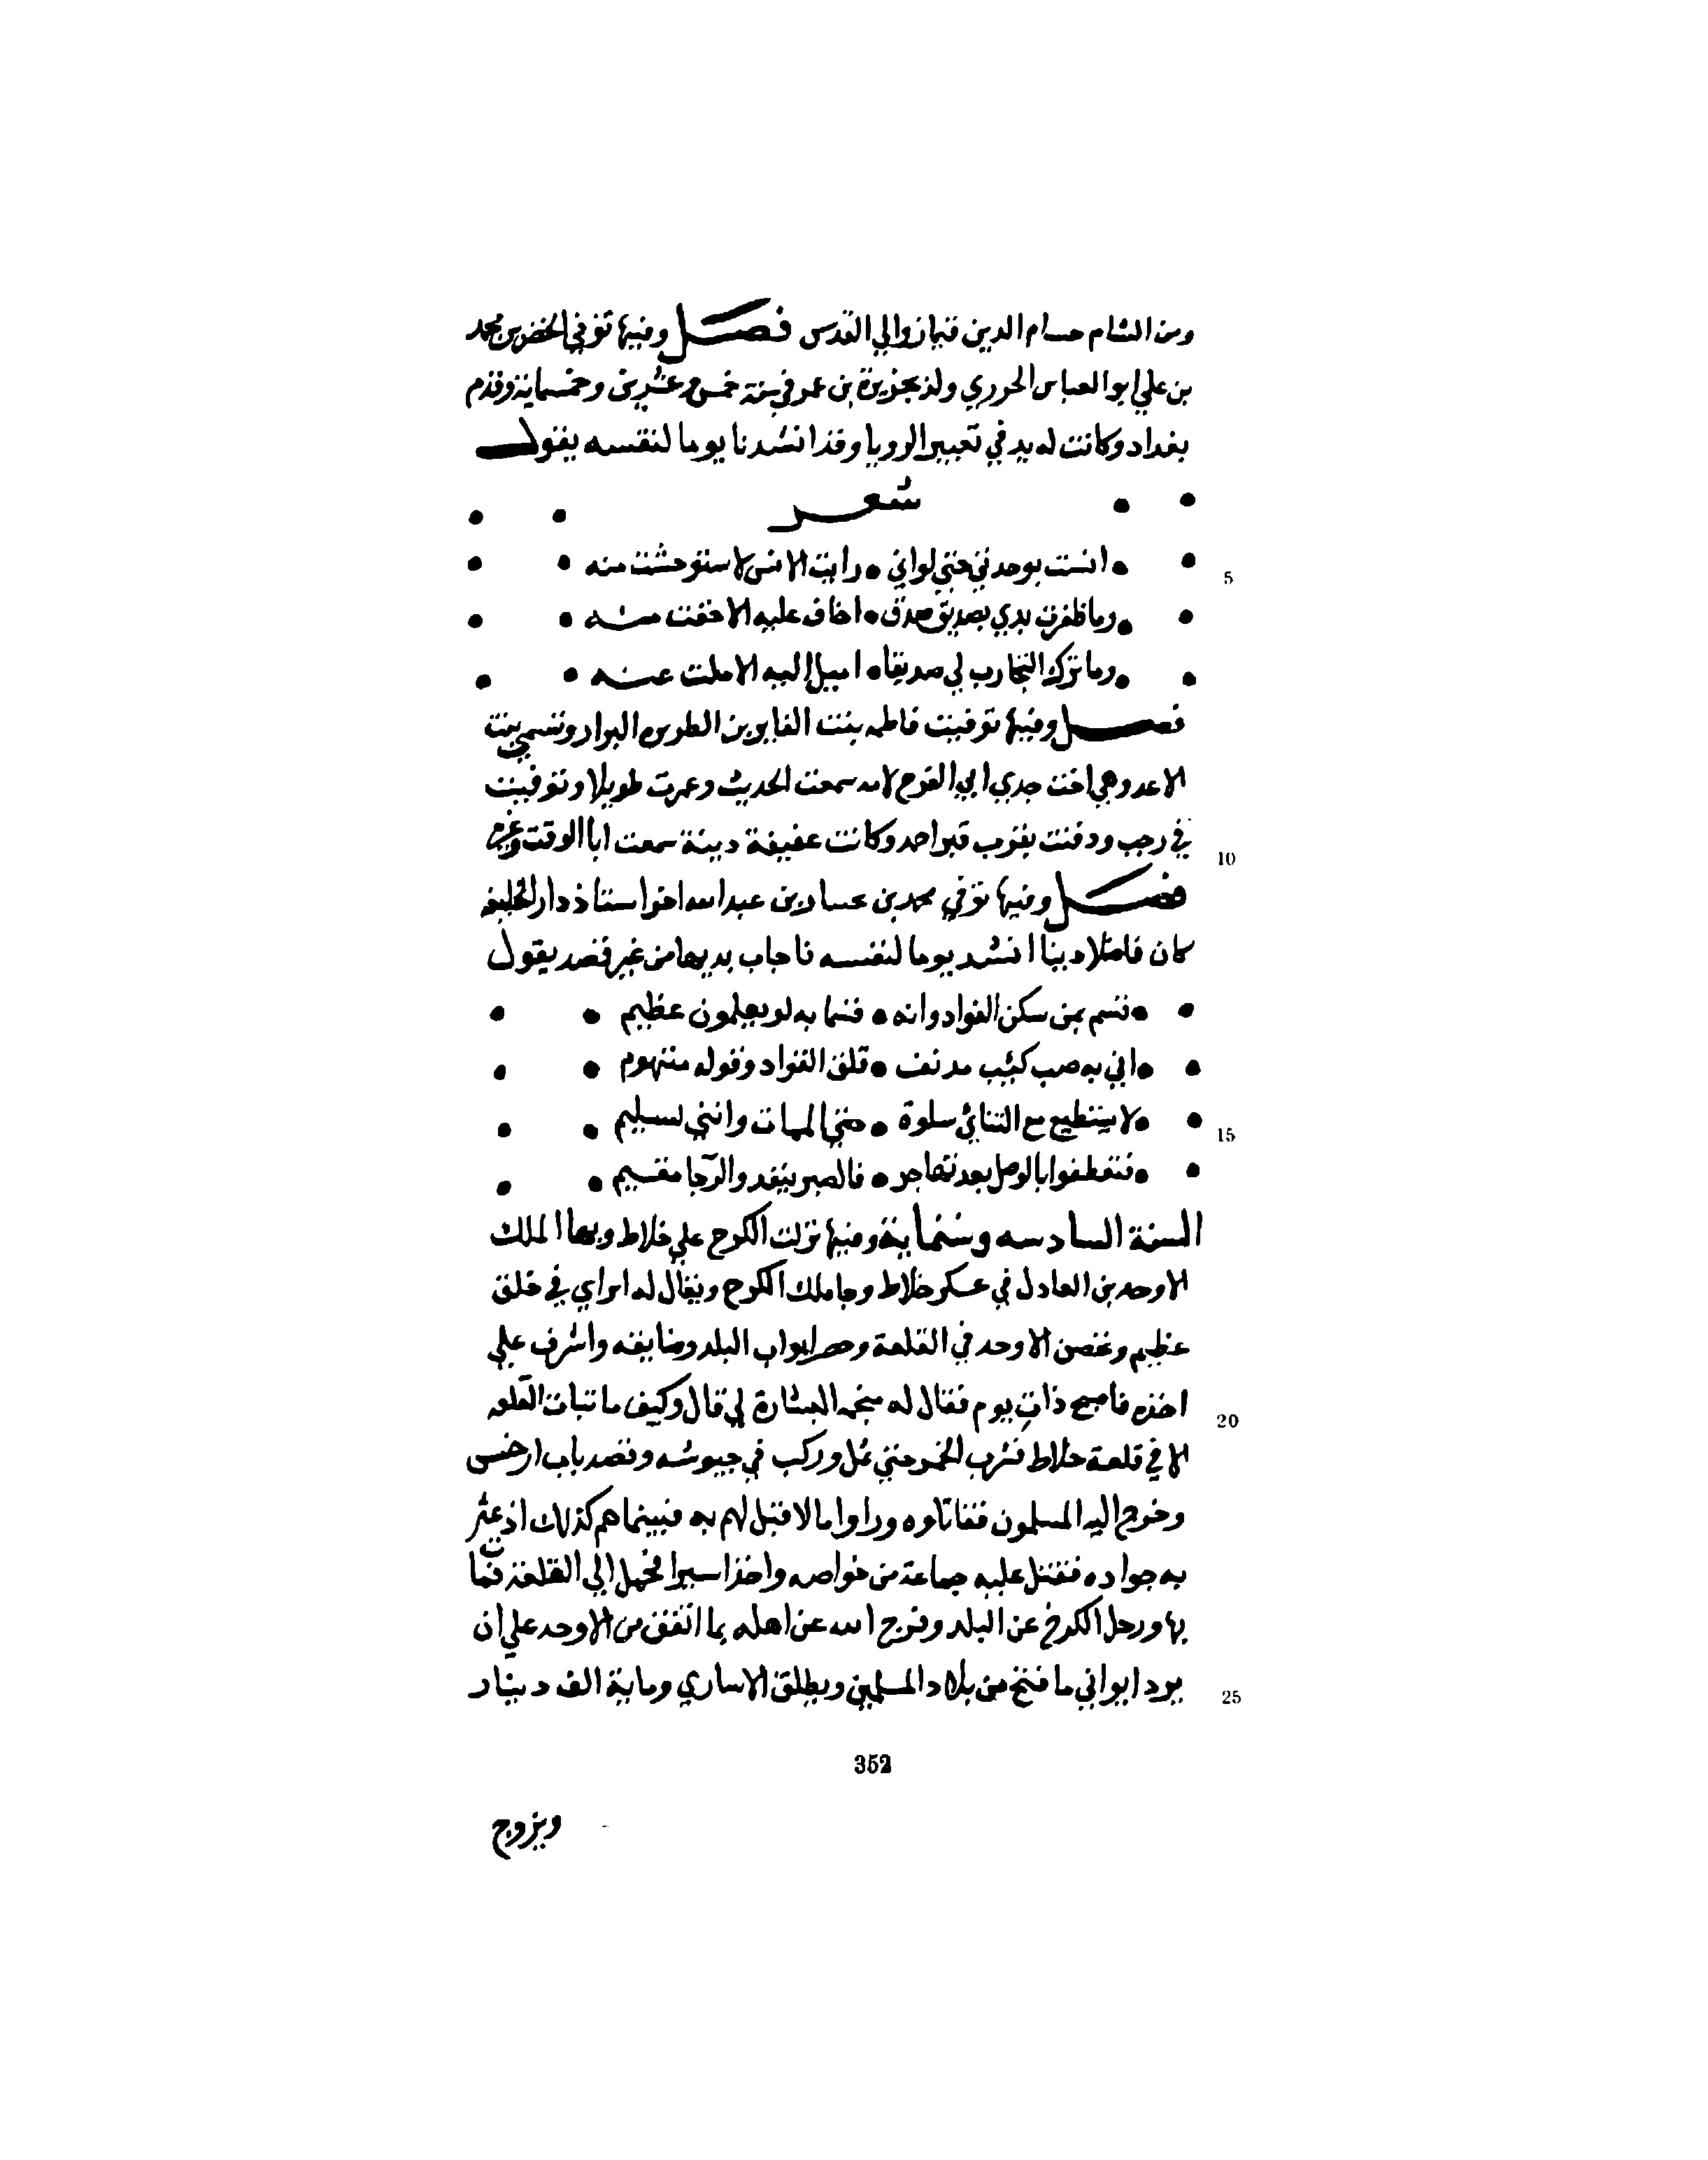 ومن الشام حسام الدين قيماز والي القدس فصل وفيها توفي الخضر بن محمد
بن علي ابو العباس الجزري ولد بجزيرة بن عمر في سنة خمس وعشرين وخمسماية وقدم
بغداد وكانت له يد في تعبير الرويا وقد انشدنا يوما لنفسه يقول
شعر
انست بوحدتي حتي لواني • رايت الانس لاستوحشت منه 5
وما ظفرت يدي بصديق صدق • اخاف عليه الا خفت منه
وما ترك التجارب لي صديقا • اميل اليه الا ملت عنه
فصل وفيها توفيت فاطمه بنت الطرس البزار وتسمي بنت
الاعد وهي اخت جدي ابي الفرج لامه سمعت الحديث وعمرت طويلا وتوفيت
في رجب ودفنت بقرب قبر احمد وكانت عفيفة دينة سمعت ابا الوقت وغيره 10
فصل وفيها توفي محمد بن عبد الله اخو استاذ دار الخليفه
كان فاضلا دينا انشد يوما لنفسه فاجاب بديها من غير قصد يقول
قسم بمن سكن الفواد وانه • قسما به لو يعلمون عظيم
اني به صب كئيب مدنف • قلق الفواد وقوله متهوم
لا يستطيع مع التنائي سلوة • حتي الممات وانني لسليم 15
فتعطفوا بالوصل بعد تهاجر • فالصبر ينفد والرجا مقيم
السنة السادسه وستماية وفيها نزلت الكرج علي خلاط وبها الملك
الاوحد بن العادل في عسكر خلاط وجا ملك الكرج ويقال له ايواي في خلق
عظيم وتحصن الاوحد في القلعة وحصر ابواب البلد وضايقه واشرف علي
اخذه فاصبح ذات يوم فقال له منجمه البشارة لي قال وكيف ما تبات القلعه 20
الا في قلعة خلاط فشرب الخمر حتي ثمل وركب في جيوشه وقصد باب ارجيش
وخرج اليه المسلمون فقاتلوه وراوا ما لا قبل لهم به فبينما هم كذلك اذ عثر
به جواده فقتل عليه جماعة من خواصه واخذ اسيرا فحمل الي القلعة فبات
بها ورحل الكرج عن البلد وفرج الله عن اهله بما اتفق من الاوحد علي ان
يرد ايواني ما فتح من بلاد المسلمين ويطلق الاساري وماية الف دينار 25
352
ويزوج